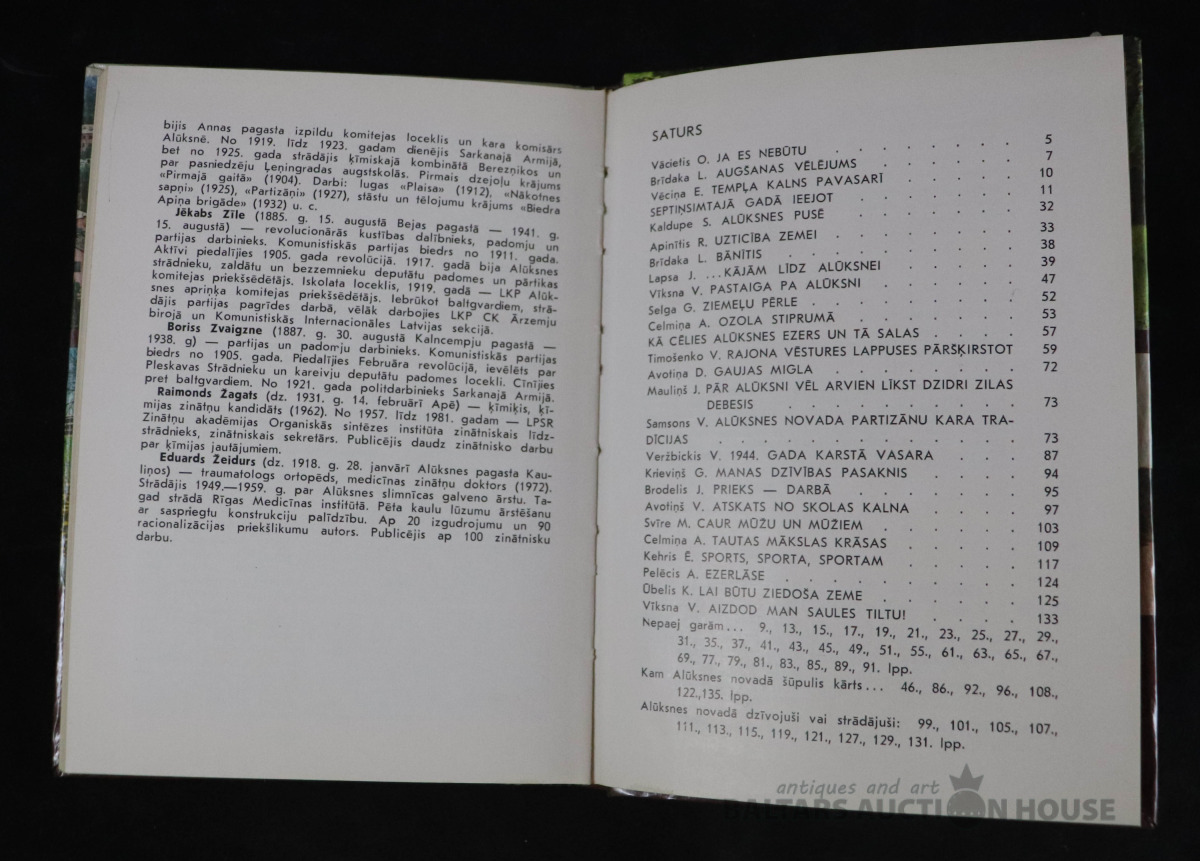 bijis Annas pagasta izpildu komitejas loceklis un kara komisārs
Alūksnē. No 1919. līdz 1923. gadam dienējis Sarkanajā Armijā,
bet no 1925. gada strādājis ķīmiskajā kombinātā Berezņikos un
par pasniedzēju Ļeņingradas augstskolās. Pirmais dzejoļu krājums
«Pirmajā gaitā» (1904). Darbi: lugas «Plaisa» (1912), «Nākotnes
sapņi» (1925), «Partizāņi» (1927), stāstu un tēlojumu krājums «Biedra
Apiņa brigāde» (1932) u. c.
Jēkabs Zīle (1885. g. 15. augustā Bejas pagastā — 1941. g.
15. augustā) — revolucionārās kustības dalībnieks, padomju un
partijas darbinieks. Komunistiskās partijas biedrs no 1911. gada.
Aktīvi piedalījies 1905. gada revolūcijā. 1917. gadā bija Alūksnes
strādnieku, zaldātu un bezzemnieku deputātu padomes un pārtikas
komitejas priekšsēdētājs. Iskolata loceklis, 1919. gadā — LKP Alūk-
snes apriņķa komitejas priekšsēdētājs. Iebrūkot baltgvardiem, strā-
dājis partijas pagrīdes darbā, vēlāk darbojies LKP CK Ārzemju
birojā un Komunistiskās Internacionāles Latvijas sekcijā.
Boriss Zvaigzne (1887. g. 30. augustā Kalncempju pagastā —
1938. g) — partijas un padomju darbinieks. Komunistiskās partijas
biedrs no 1905. gada. Piedalījies Februāra revolūcijā, ievēlēts par
Pleskavas Strādnieku un kareivju deputātu padomes locekli. Cīnījies
pret baltgvardiem. No 1921. gada politdarbinieks Sarkanajā Armijā.
Raimonds Žagats (dz. 1931. g. 14. februārī Apē) — ķīmiķis, ķī-
mijas zinātņu kandidāts (1962). No 1957. līdz 1981. gadam — LPSR
Zinātņu akadēmijas Organiskās sintēzes institūta zinātniskais līdz-
strādnieks, zinātniskais sekretārs. Publicējis daudz zinātnisko darbu
par ķīmijas jautājumiem.
Eduards Žeidurs (dz. 1918. g. 28. janvārī Alūksnes pagasta Kau-
liņos) — traumatologs ortopēds, medicīnas zinātņu doktors (1972).
Strādājis 1949.—1959. g. par Alūksnes slimnīcas galveno ārstu. Ta-
gad strādā Rīgas Medicīnas institūtā. Pēta kaulu lūzumu ārstēšanu
ar saspriegtu konstrukciju palīdzību. Ap 20 izgudrojumu un 90
racionalizācijas priekšlikumu autors. Publicējis ap 100 zinātnisku
darbu.
SATURS
Vācietis O. JA ES NEBŪTU . . . . . . . . 5
Brīdaka L. AUGŠANAS VĒLĒJUMS . . . . . . 7
Vēciņa E. TEMPĻA KALNS PAVASARĪ . . . . . 10
SEPTIŅSIMTAJĀ GADĀ IEEJOT . . . . . . . 11
Kaldupe S. ALŪKSNES PUSĒ . . . . . . . 32
Apinītis R. UZTICĪBA ZEMEI . . . . . . . 33
Brīdaka L. BĀNĪTIS . . . . . . . . . 38
Lapsa J. ...KĀJĀM LĪDZ ALŪKSNEI . . . . . 39
Vīksna V. PASTAIGA PA ALŪKSNI . . . . . . 47
Selga G. ZIEMEĻU PĒRLE . . . . . . . . 52
Celmiņa A. OZOLA STIPRUMĀ . . . . . . . 53
KĀ CĒLIES ALŪKSNES EZERS UN TĀ SALAS . . . . 57
Timošenko V. RAJONA VĒSTURES LAPPUSES PĀRŠĶIRSTOT 59
Avotiņa D. GAUJAS MIGLA . . . . . . . . 72
Mauliņš J. PĀR ALŪKSNI VĒL ARVIEN LĪKST DZIDRI ZILAS
DEBESIS . . . . . . . . . 73
Samsons V. ALŪKSNES NOVADA PARTIZĀNU KARA TRA-
DĪCIJAS . . . . . . . . . . . . 73
Veržbickis V. 1944. GADA KARSTĀ VASARA . . . . 87
Krieviņš G. MANAS DZĪVĪBAS PASAKNIS . . . . 94
Brodelis J. PRIEKS — DARBĀ . . . . . . . 95
Avotiņš V. ATSKATS NO SKOLAS KALNA . . . . 97
Svīre M. CAUR MŪŽU UN MŪŽIEM . . . . . . 103
Celmiņa A. TAUTAS MĀKSLAS KRĀSAS . . . . . 109
Kehris Ē. SPORTS, SPORTA, SPORTAM . . . . . 117
Pelēcis A. EZERLĀSE . . . . . . . . . 124
Ūbelis K. LAI BŪTU ZIEDOŠA ZEME . . . . . . 125
Vīksna V. AIZDOD MAN SAULES TILTU! . . . . 133
Nepaej garām... 9., 13., 15., 17., 19., 21., 23., 25., 27., 29.,
31., 35., 37., 41., 43., 45., 49., 51., 55., 61., 63., 65., 67.,
69., 77., 79., 81., 83., 85., 89., 91. lpp.
Kam Alūksnes novadā šūpulis kārts... 46., 86., 92., 96., 108.,
122.,135. lpp.
Alūksnes novadā dzīvojuši vai strādājuši: 99., 101., 105., 107.,
111., 113., 115., 119., 121., 127., 129., 131. lpp.
antiques and art
BALTARS AUCTION HOUSE